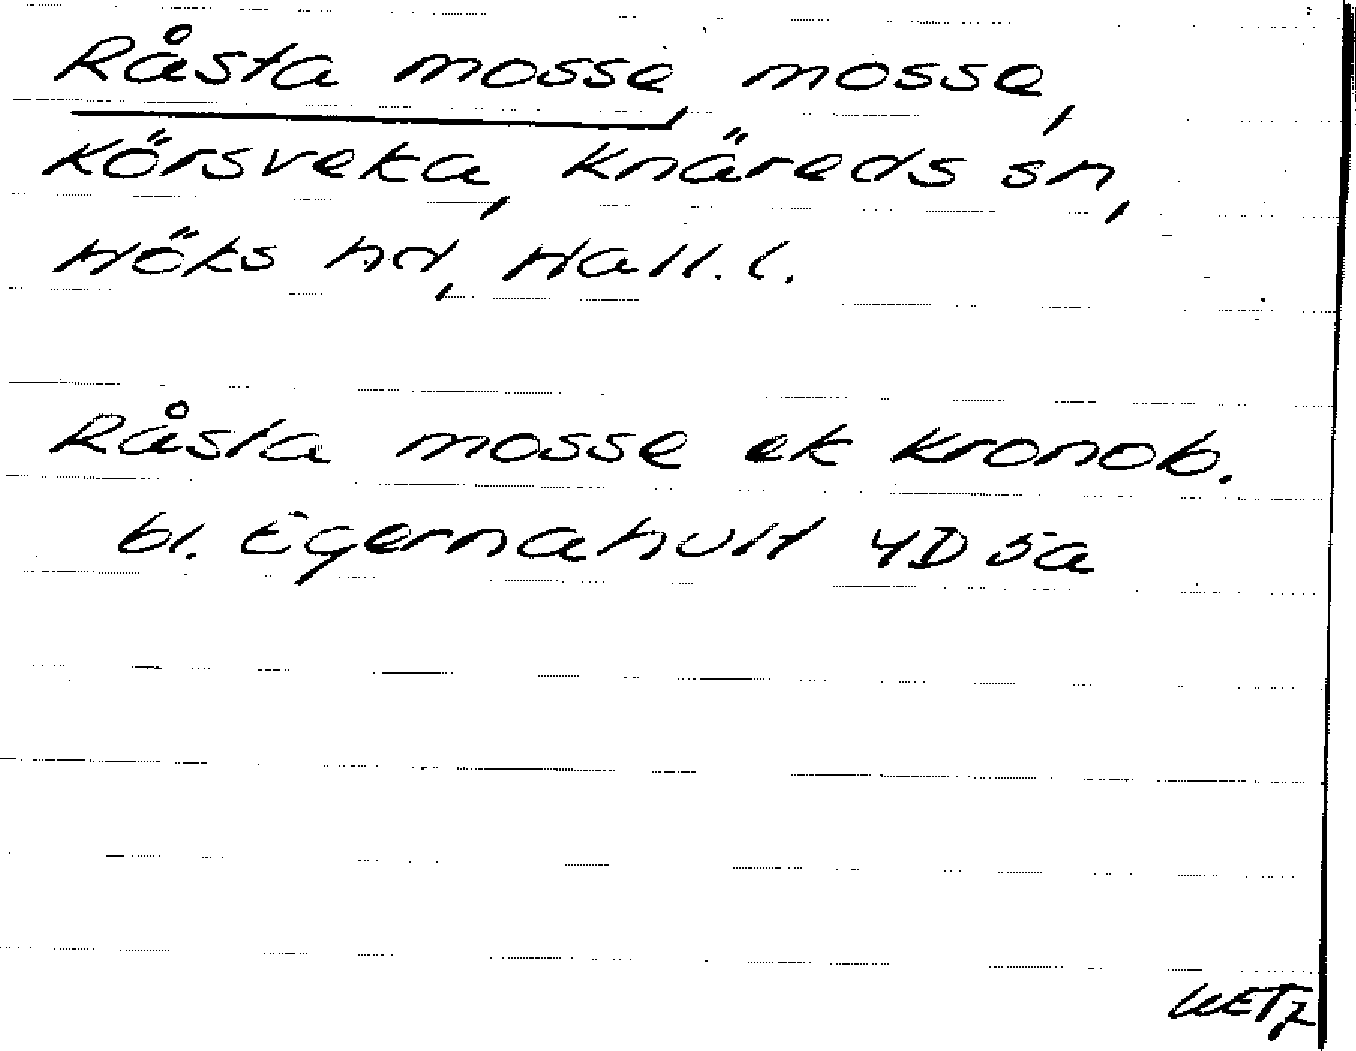 Råsta mosse, mosse,
Körsveka, Knäreds sn,
Höks hd, Hall. l.
Råsta mosse ek Kronob.
bl. Egernahult 4D 5a